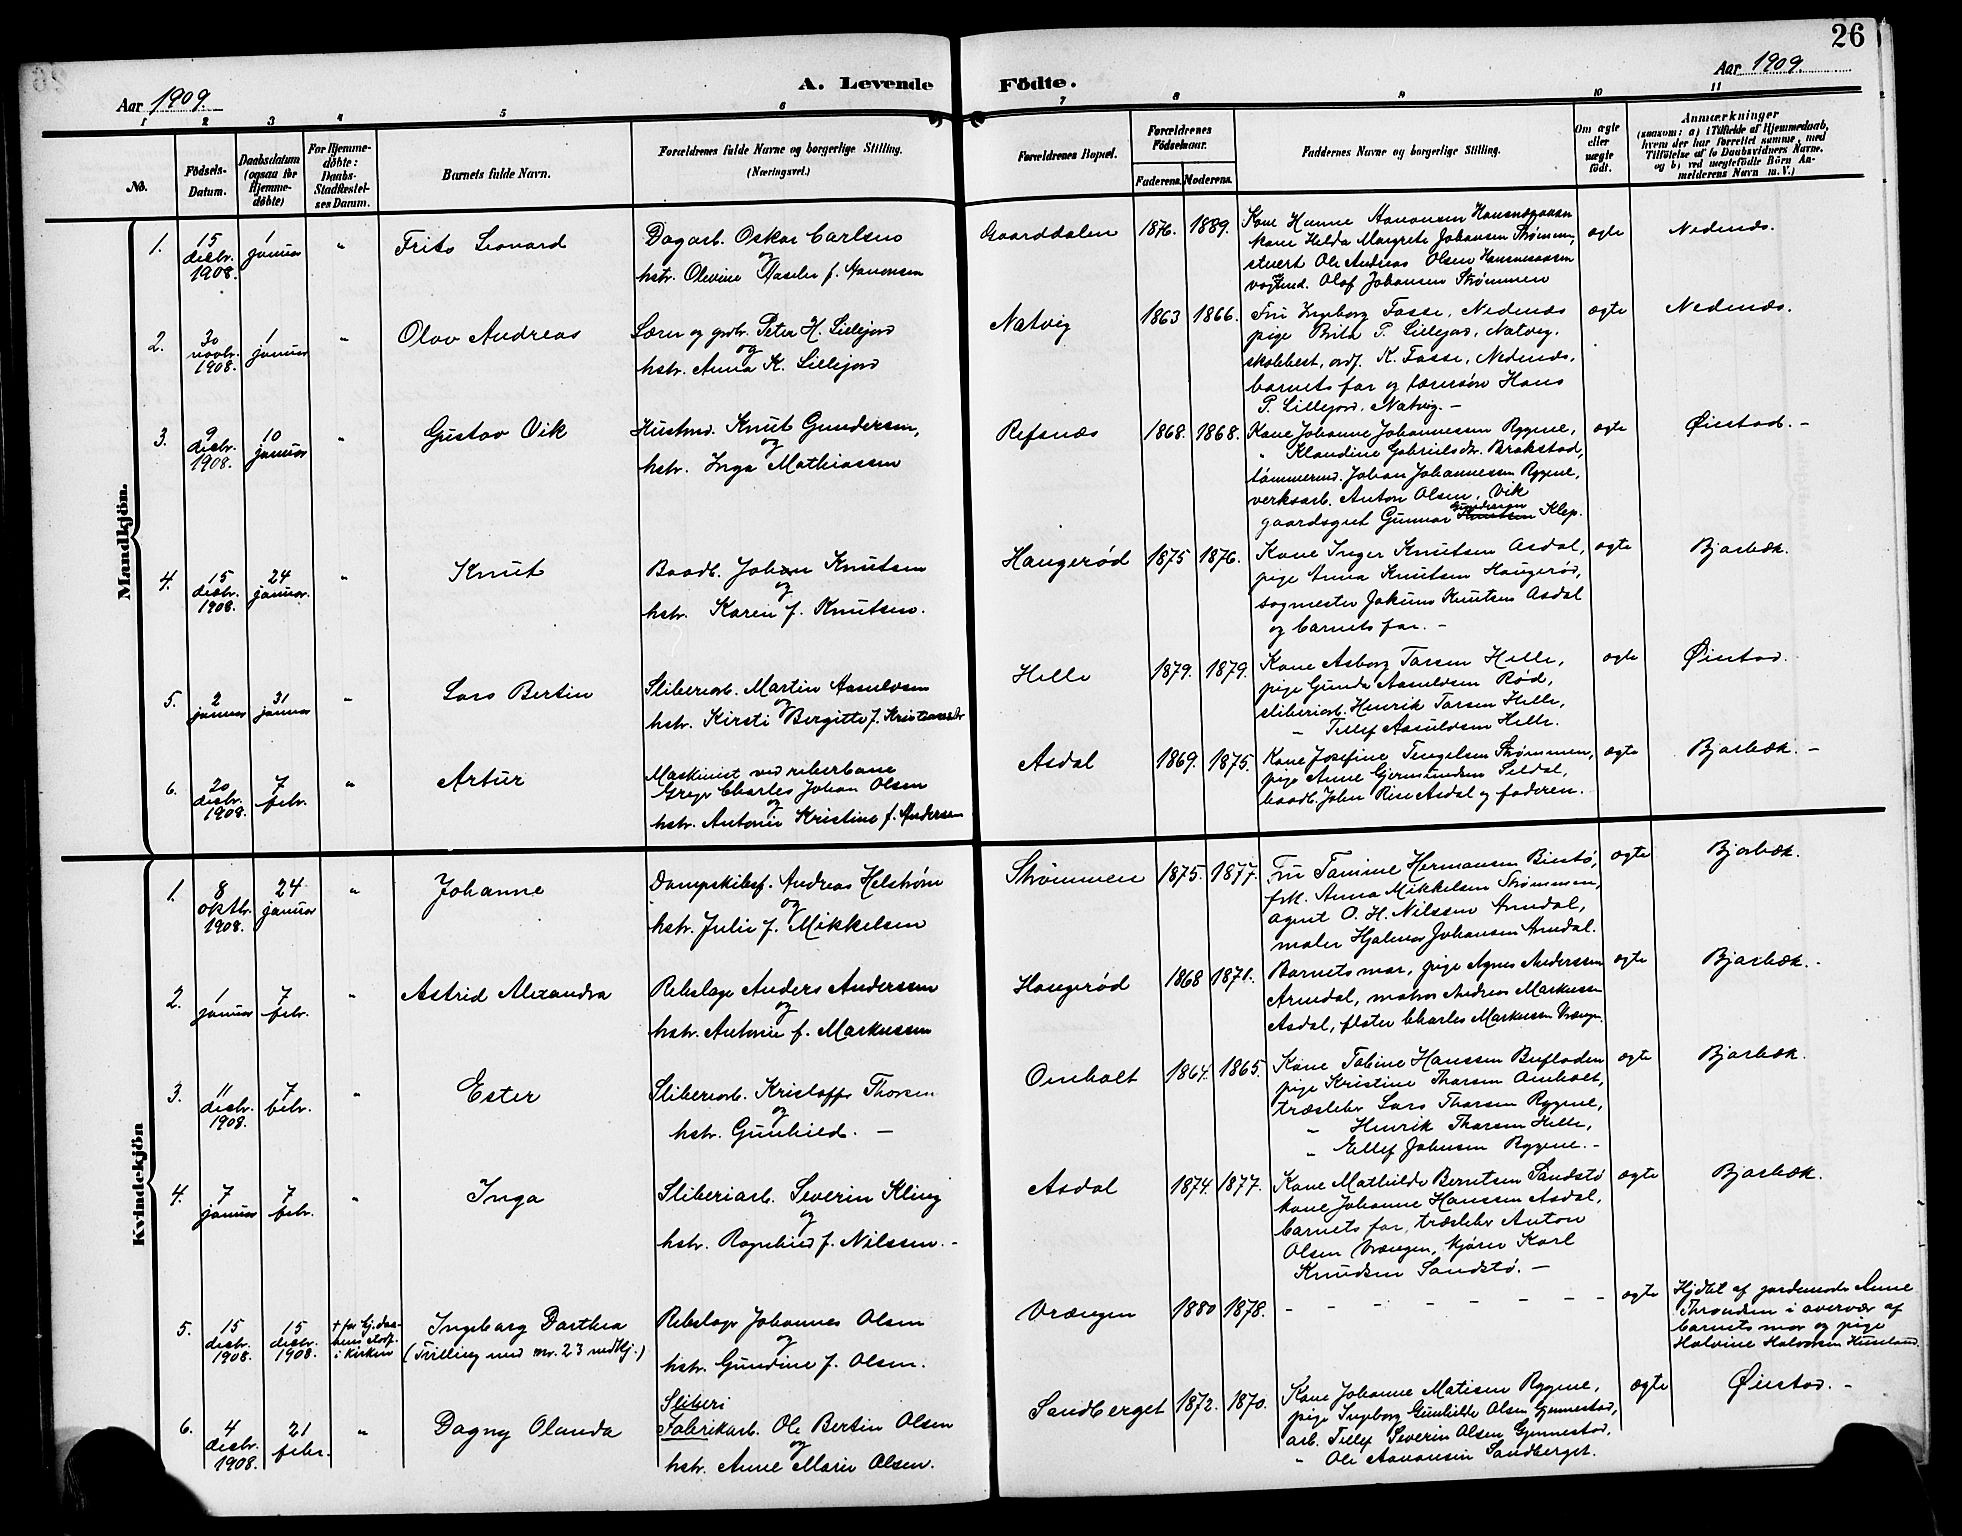 26
Aar 1909.
A. Levende
Födte.
Aar 1909.
1 2 3 4 5 6 7 8 9 10 11
No.
Födsels-
Datum.
Daabsdatum
(ogsaa for
Hjemme-
døbte)
For Hjemme-
døbte:
Daabs-
Stadfæstel-
ses Datum.
Barnets fulde Navn.
Forældrenes fulde Navne og borgerlige Stilling.
(Næringsvei.)
Forældrenes Bopæl.
Forældrenes
Födselsaar.
Faderens. Moderens.
Faddernes Navne og borgerlige Stilling.
Om ægte
eller
uægte
født.
Anmærkninger
(saasom: a) i Tilfælde af Hjemmedaab,
hvem der har forrettet samme, med
Tilføielse af to Daabsvidners Navne.
og b) ved uægtefødte Börn An-
melderens Navn m. V.)
Mandkjön.
1. 15 desbr. 1908. 1 januar " Frits Leonard
Dagarb. Oskar Carlsen
og
hstr. Olevine f. Aanonsen
Gaarddalen 1876. 1889.
Kone Hanne Aanonsen
kone Helda Margrete Johansen Strømmen,
stuert Ole Andreas Olsen
Olaf Johansen Strømmen
ægte Nedenæs.
2. 30 novbr. 1908. 1 januar " Olav Andreas
Lærer og grdbr. Peter H. Lillejord
og
hstr. Anna K. Lillejord
Natvig 1863 1866.
Fru Ingborg Fasse, Nedenæs
pige Brita P. Lillejord, Natvig.
skolebest., ordf. K. Fasse, Nedenæs.
barnets far og lærersøn Hans
P. Lillejord, Natvig. -
ægte Nedenæs.
3. 9 desbr. 1908. 10 januar " Gustav Vik
Husmd. Knut Gundersen,
og
hstr. Inga Mathiassen
Refsnæs 1868. 1868.
Kone Johanne Johannessen Rygene,
" Klaudine Gabrielsdr. Brakstad,
tømmermd. Johan Johannessen Rygene,
verksarb. Anton Olsen, Vik
Gundersen
gaardsgut Gunnar Knutsen Klep.
ægte Øiestad. -
4. 15 desbr. 1908. 24 januar. " Knut
Baadb. Johan Knutsen
og
hstr. Karen f. Knutsen.
Haugerød 1875 1876.
Kone Inger Knutsen Asdal,
pige Anna Knutsen Haugerød,
sagmester Jakum Knutsen Asdal
og barnets far. -
ægte Bjorbæk.
5. 2 januar 31 januar " Lars Bertin
Sliberiarb. Martin Aasuldsen
og
hstr. Kirsti Bergitte f. Kristiansdr
Helle 1879. 1879.
Kone Asborg Tarsen Helle,
pige Gunda Aasuldsen Rød,
sliberiarb. Henrik Tarsen Helle,
" Tellef Aasuldsen Helle.
ægte Øiestad.
6. 20 desbr. 1908. 7 febr. " Artur
Maskinist ved riberbane
Charles Johan Olsen
og
hstr. Antonie Kristine f. Andersen
Asdal 1869. 1875.
Kone Josefine Tengelsen Strømmen,
pige Anne Gjermundsen Seldal,
baadb. John Rise Asdal og faderen.
ægte Bjorbæk. -
Kvindekjön
1. 8 oktbr. 1908. 24 januar " Johanne
Dampskibsf. Andreas Helstrøm
og
hstr. Julie f. Mikkelsen
Strømmen 1875. 1877.
Fru Tamine Hermansen Biestø,
frk. Anna Mikkelsen Strømmen,
agent O. H. Nilssen Arendal,
maler Hjalmar Johansen Arendal.
ægte Bjorbæk.
2. 1 januar 7 febr. " Astrid Alexandra
Rebslager Anders Anderssen
og
hstr. Antonie f. Markussen
Haugerød 1868 1871.
Barnets mor, pige Agnes Anderssen
Arendal, matros Andreas Markussen
Asdal, Charles Markussen Vrængen.
ægte Bjorbæk. -
3. 11 desbr. 1908. 7 febr. " Ester
Sliberiarb. Kristoffer Thorsen
og
hstr. Gunhild. -
Omholt 1864. 1865.
Kone Tabine Hanssen Bufladen
pige Kristine Thorsen Omholt,
træsliber Lars Thorsen Rygene,
" Henrik Thorsen Helle,
" Ellef Johnsen Rygene. -
ægte Bjorbæk.
4. 7 januar 7 febr. " Inga
Sliberiarb. Severin Kling
og
hstr. Ragnhild f. Nilssen. -
Asdal 1874. 1877.
Kone Mathilde Berntsen Sandstø
kone Johanne Hanssen Asdal,
barnets far, træsliber Anton
Olsen Vrængen, kjører Karl
Knudsen Sandstø. -
ægte Bjorbæk.
5. 15 desbr. 1908. 15 desbr. 1908.
i kirken
Ingeborg Darthea
(Trilling med nr. 23 mdkj.)
Rebslager Johannes Olsen
og
hstr. Gundine f. Olsen.
Vrængen 1880 1878. - - - - - - - -
ægte
Hjdbt. af jordemoder Anne
Throndsen i overvær af
barnets mor og pige
Halvine Halvorsen
6. 4 desbr. 1908. 21 febr. " Dagny Olanda
Sliberi
Fabrikarb. Ole Bertin Olsen
og
hstr. Anne Marie Olsen.
Sandberget 1872. 1870.
Kone Johanne Matisen Rygene,
pige Ingeborg Gunhilde Olsen Gjennestad,
arb. Tellef Severin Olsen Gjennestad,
" Ole Aanonsen Sandberget.
ægte Øiestad. -